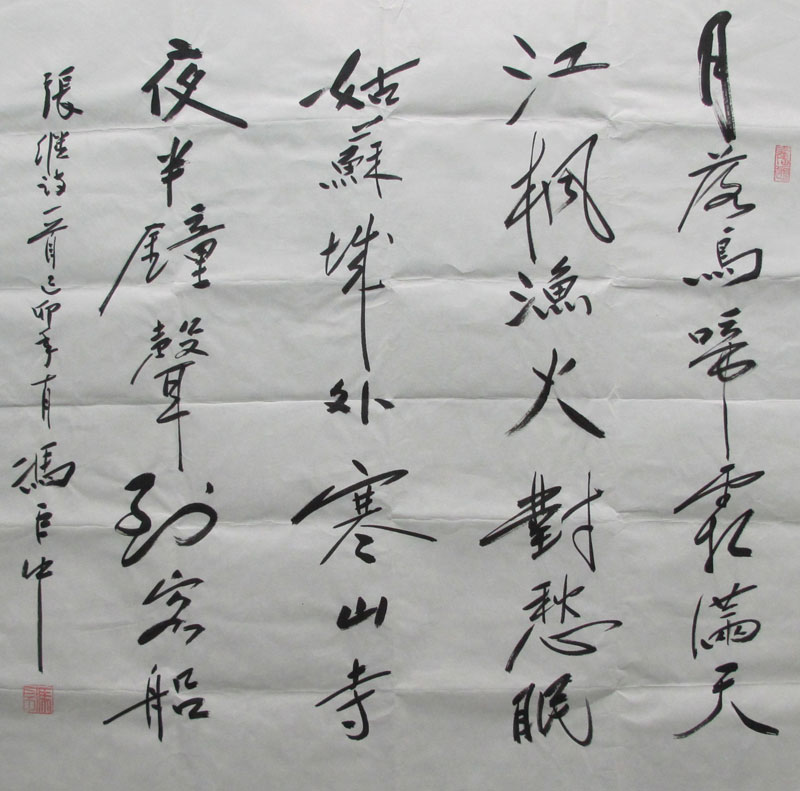 月落烏啼霜滿天
江楓漁火對愁眠
姑蘇城外寒山寺
夜半鐘聲到客船
張继诗一首己卯年 馮巨中